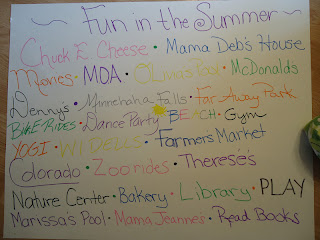 ~ Fun in the Summer ~
Chuck E. Cheese • Mama Deb's House
Movies • MOA • Olivia's Pool • McDonalds
Denny's • Minnehaha Falls • Far Away Park
Bike Rides • Dance Party • BEACH • Gym
YOGI • Wi Dells • Farmer's Market
Colorado • Zoo rides • Therese's
Nature Center • Bakery • Library • PLAY
Marissa's Pool • Mama Jeanne's • Read Books